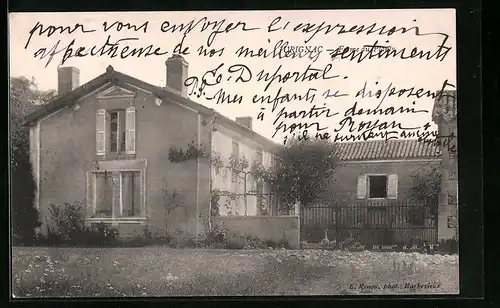 pour vous envoyer l'expression
affectueuse de nos meilleurs sentiments
JURIGNAC
E. Duportal.
P.S. Mes enfants se disposent
à partir demain
pour Royan
E. Rénou, phot., Barbezieux